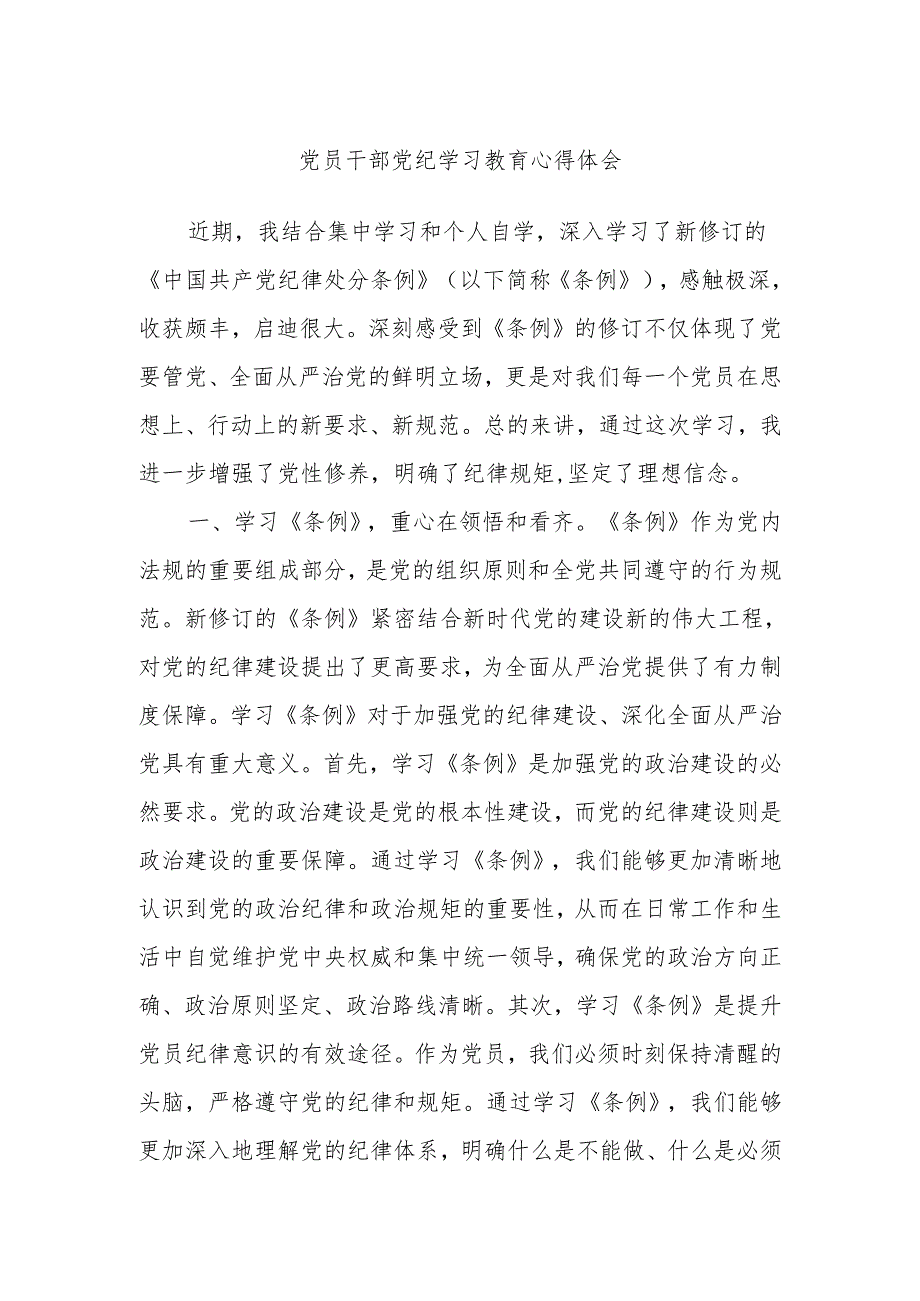 党员干部党纪学习教育心得体会
近期，我结合集中学习和个人自学，深入学习了新修订的
《中国共产党纪律处分条例》（以下简称《条例》），感触极深，
收获颇丰，启迪很大。深刻感受到《条例》的修订不仅体现了党
要管党、全面从严治党的鲜明立场，更是对我们每一个党员在思
想上、行动上的新要求、新规范。总的来讲，通过这次学习，我
进一步增强了党性修养，明确了纪律规矩,坚定了理想信念。
一、学习《条例》，重心在领悟和看齐。《条例》作为党内
法规的重要组成部分，是党的组织原则和全党共同遵守的行为规
范。新修订的《条例》紧密结合新时代党的建设新的伟大工程，
对党的纪律建设提出了更高要求，为全面从严治党提供了有力制
度保障。学习《条例》对于加强党的纪律建设、深化全面从严治
党具有重大意义。首先，学习《条例》是加强党的政治建设的必
然要求。党的政治建设是党的根本性建设，而党的纪律建设则是
政治建设的重要保障。通过学习《条例》，我们能够更加清晰地
认识到党的政治纪律和政治规矩的重要性，从而在日常工作和生
活中自觉维护党中央权威和集中统一领导，确保党的政治方向正
确、政治原则坚定、政治路线清晰。其次，学习《条例》是提升
党员纪律意识的有效途径。作为党员，我们必须时刻保持清醒的
头脑，严格遵守党的纪律和规矩。通过学习《条例》，我们能够
更加深入地理解党的纪律体系，明确什么是不能做、什么是必须